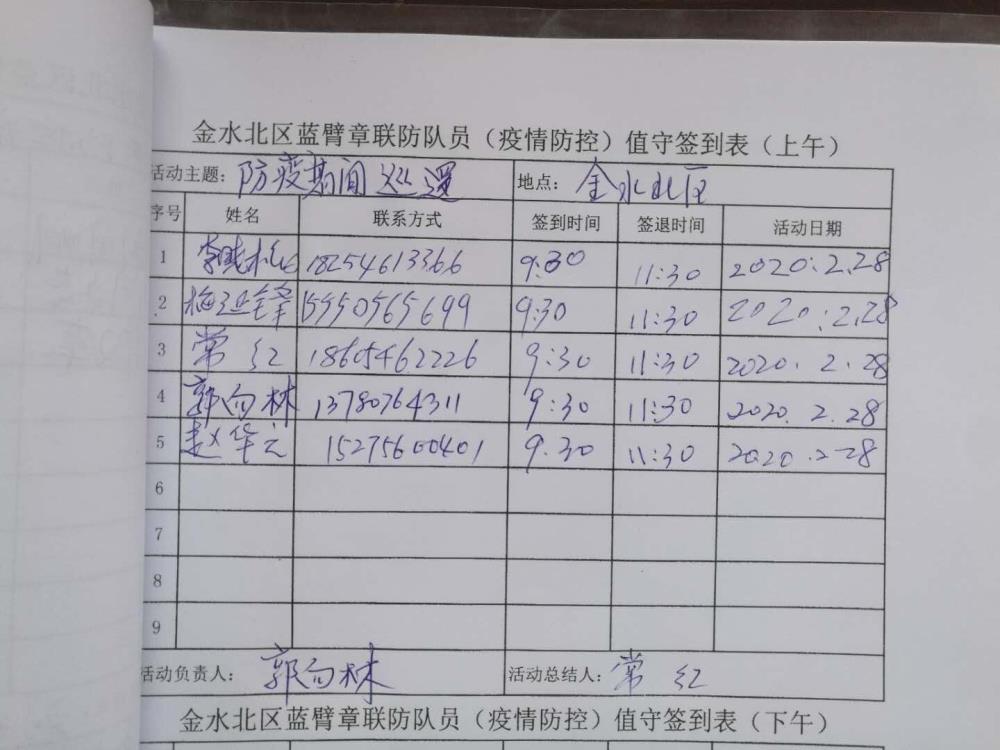 金水北区蓝臂章联防队员（疫情防控）值守签到表（上午）
活动主题： 防疫期间巡逻 地点： 金水北区
序号 姓名 联系方式 签到时间 签退时间 活动日期
1 李晓 18254613366 9:30 11:30 2020.2.28
2 梅迎锋 15950565699 9:30 11:30 2020.2.28
3 常红 18605462226 9:30 11:30 2020.2.28
4 郭向林 13780764311 9:30 11:30 2020.2.28
5 赵华云 15275600401 9.30 11:30 2020.2-28
6
7
8
9
活动负责人： 郭向林 活动总结人： 常红
金水北区蓝臂章联防队员（疫情防控）值守签到表（下午）